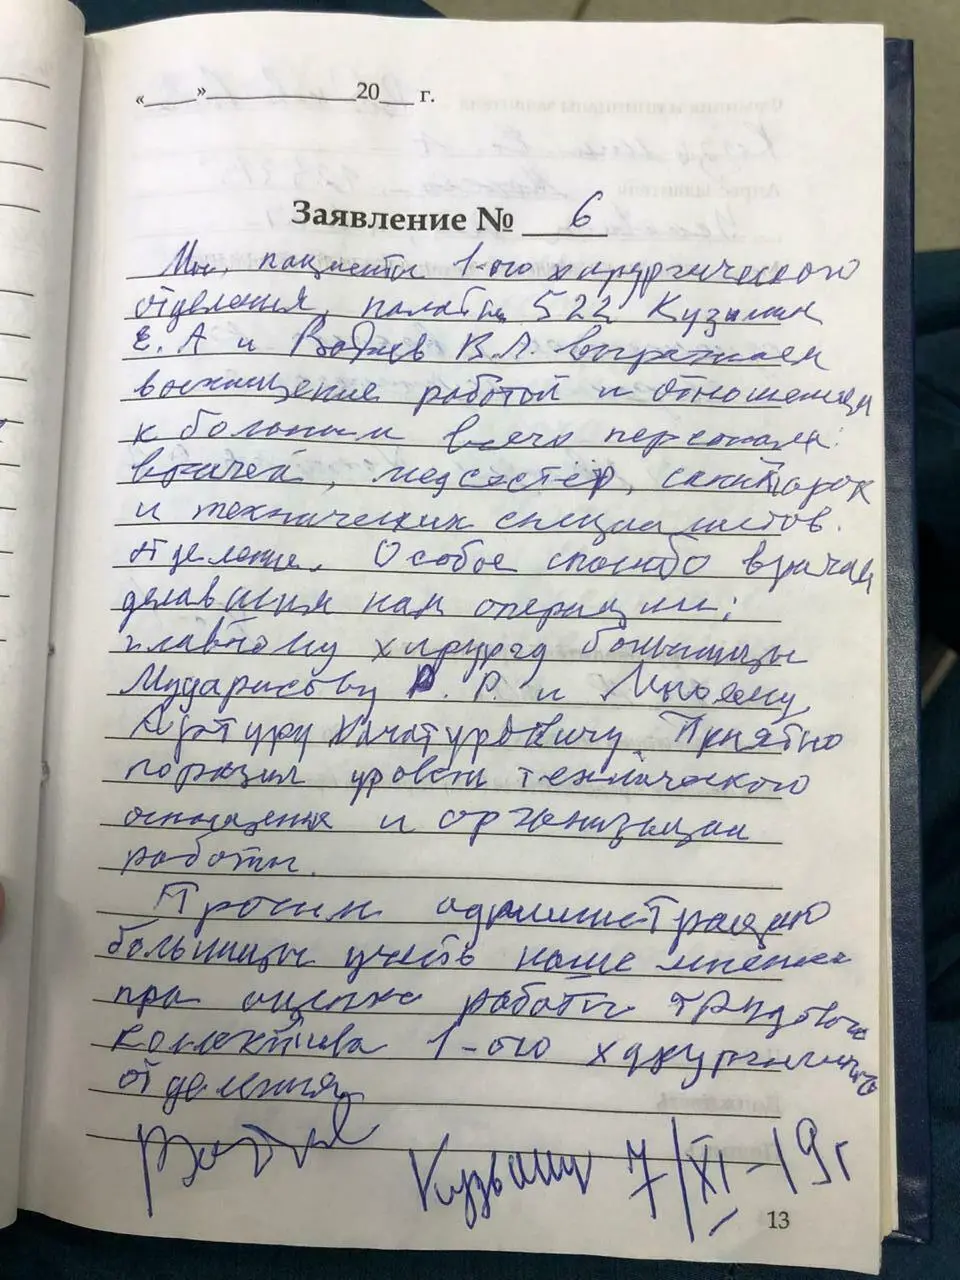 «____»____________20___ г.
Заявление № 6
Мы, пациенты 1-ого хирургического
отделения, палаты 522 Кузьмин
Е. А и В. А. выражаем
восхищение работой и отношением
к больным всего персонала:
врачей, медсестёр, санитарок
и технических специалистов
отделения. Особое спасибо врачам
делавшим нам операции:
главному хирургу больницы
Мударисову Р. Р. и
Артуру Хачатуровичу. Приятно
поразил уровень технического
оснащения и организации
работы.
Просим администрацию
больницы учесть наше мнение
при оценке работы трудового
коллектива 1-ого хирургического
отделения
Кузьмин 7/XI-19г
13